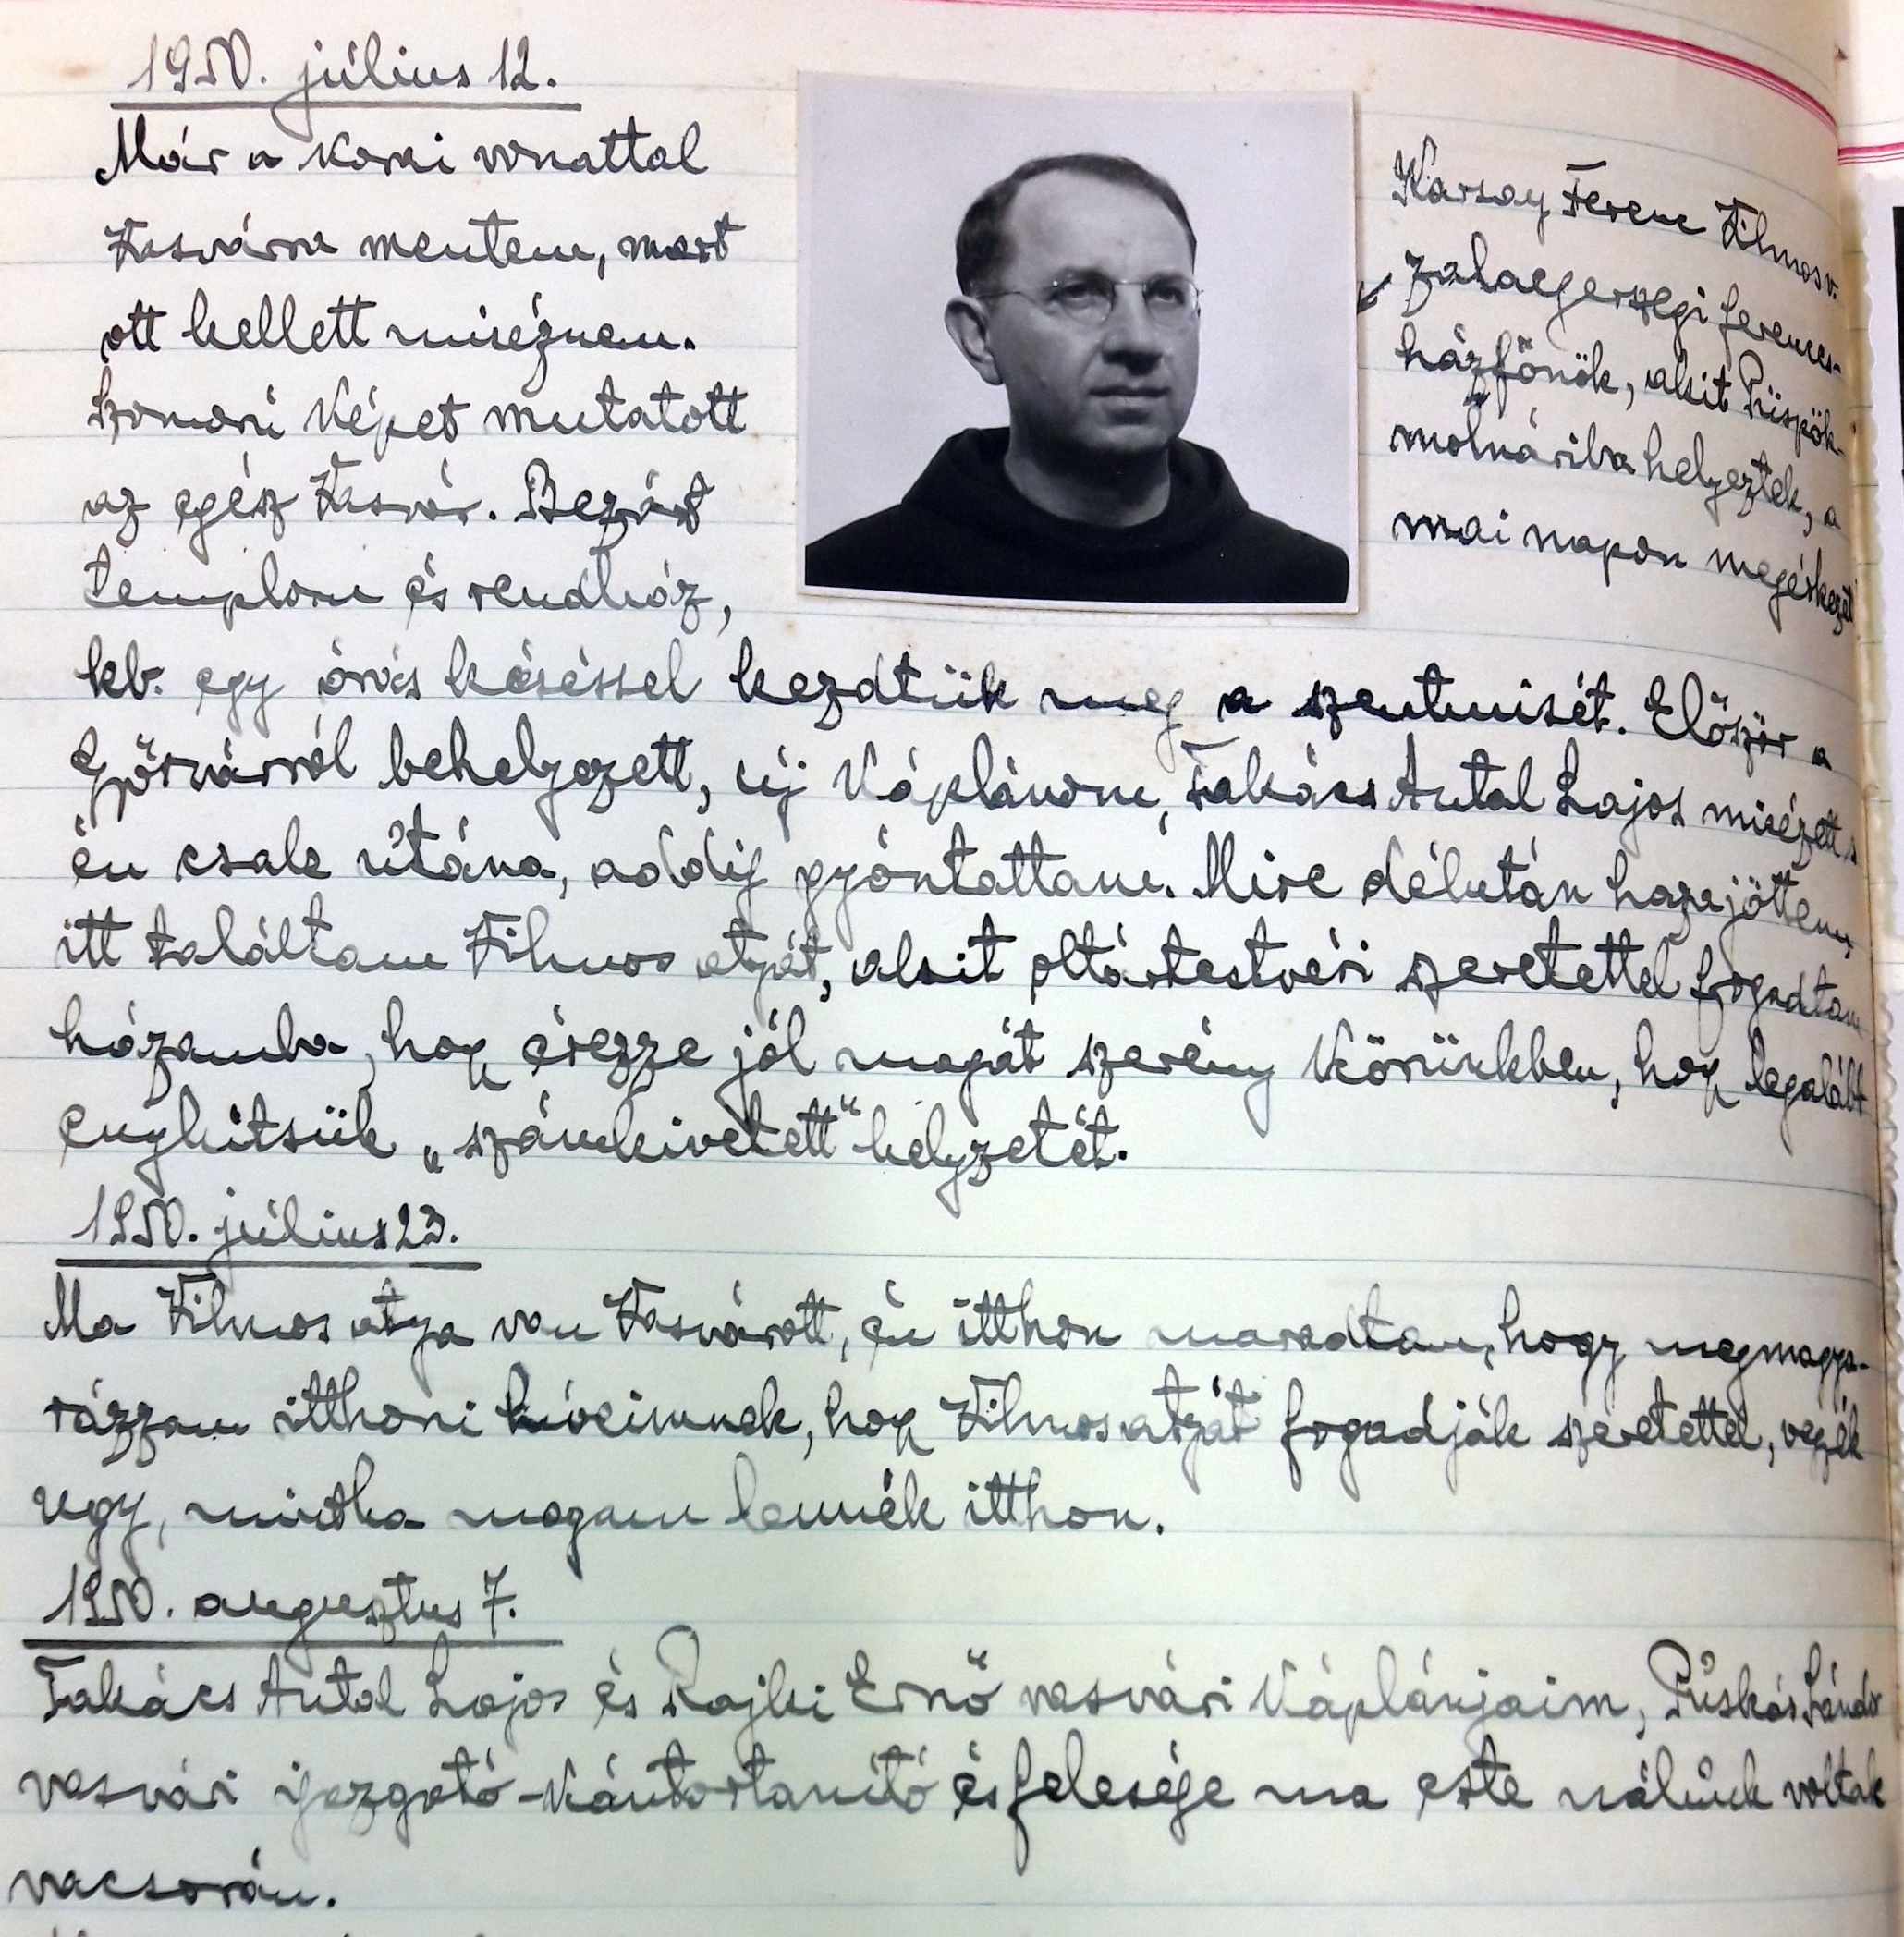 1950. július 12.
Már a korai vonattal
Vasvárra mentem, mert
ott kellett miséznem.
Szomorú képet mutatott
az egész Vasvár. Bezárt
templom és rendház,
Karsay Ferenc Vilmos v.
zalaegerszegi ferences-
házfőnök, akit Püspök-
molnáriba helyeztek, a
mai napon megérkezett
kb. egy órás késéssel kezdtük meg a szentmisét. Először a
Győrvárról behelyezett, új káplánom, Takács Antal Lajos misézett s
én csak utána, addig gyóntattam. Mire délután hazajöttem,
itt találtam Vilmos atyát, akit oltártestvéri szeretettel fogadtam
házamba, hogy érezze jól magát szerény körünkben, hogy legalább
enyhítsük „számkivetett" helyzetét.
1950. július 23.
Ma Vilmos atya van Vasvárott, én itthon maradtam, hogy megmagya-
rázzam itthoni híveimnek, hogy Vilmos atyát fogadják szeretettel, vegyék
ugy, mintha magam lennék itthon.
1950. augusztus 7.
Takács Antal Lajos és Rajki Ernő vasvári káplánjaim, Puskás Sándor
vasvári igazgató-kántortanító és felesége ma este nálunk voltak
vacsorán.